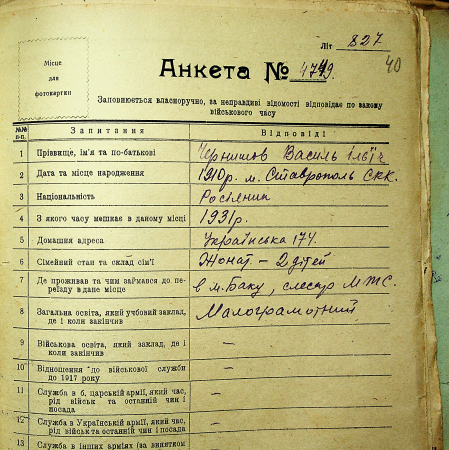 Літ 827
40
Місце
для
фотокартки
Анкета № 4749.
Заповнюється власноручно, за неправдиві відомості відповідає по закону
військового часу
№№ п-п. Запитання Відповіді
1 Прізвище, ім'я та по-батькові Чернишов Василь Ілліч
2 Дата та місце народження 1910р. м. Ставрополь СКК.
3 Національність Росіянин
4 З якого часу мешкає в даному місці 1931р.
5 Домашня адреса Українська 174.
6 Сімейний стан та склад сім'ї Жонат – 2 дітей
7 Де проживав та чим займався до пе-
реїзду в дане місце в м. Баку, слесар МЖС.
8 Загальна освіта, який учбовий заклад,
де і коли закінчив Малограмотний
9 Військова освіта, який заклад, де і
коли закінчив –
10 Відношення до військової служби
до 1917 року –
11 Служба в б. царській армії, який час,
рід військ та останній чин і
посада –
12 Служба в Українській армії, який час,
рід військ та останній чин і посада –
13 Служба в інших арміях (за винятком